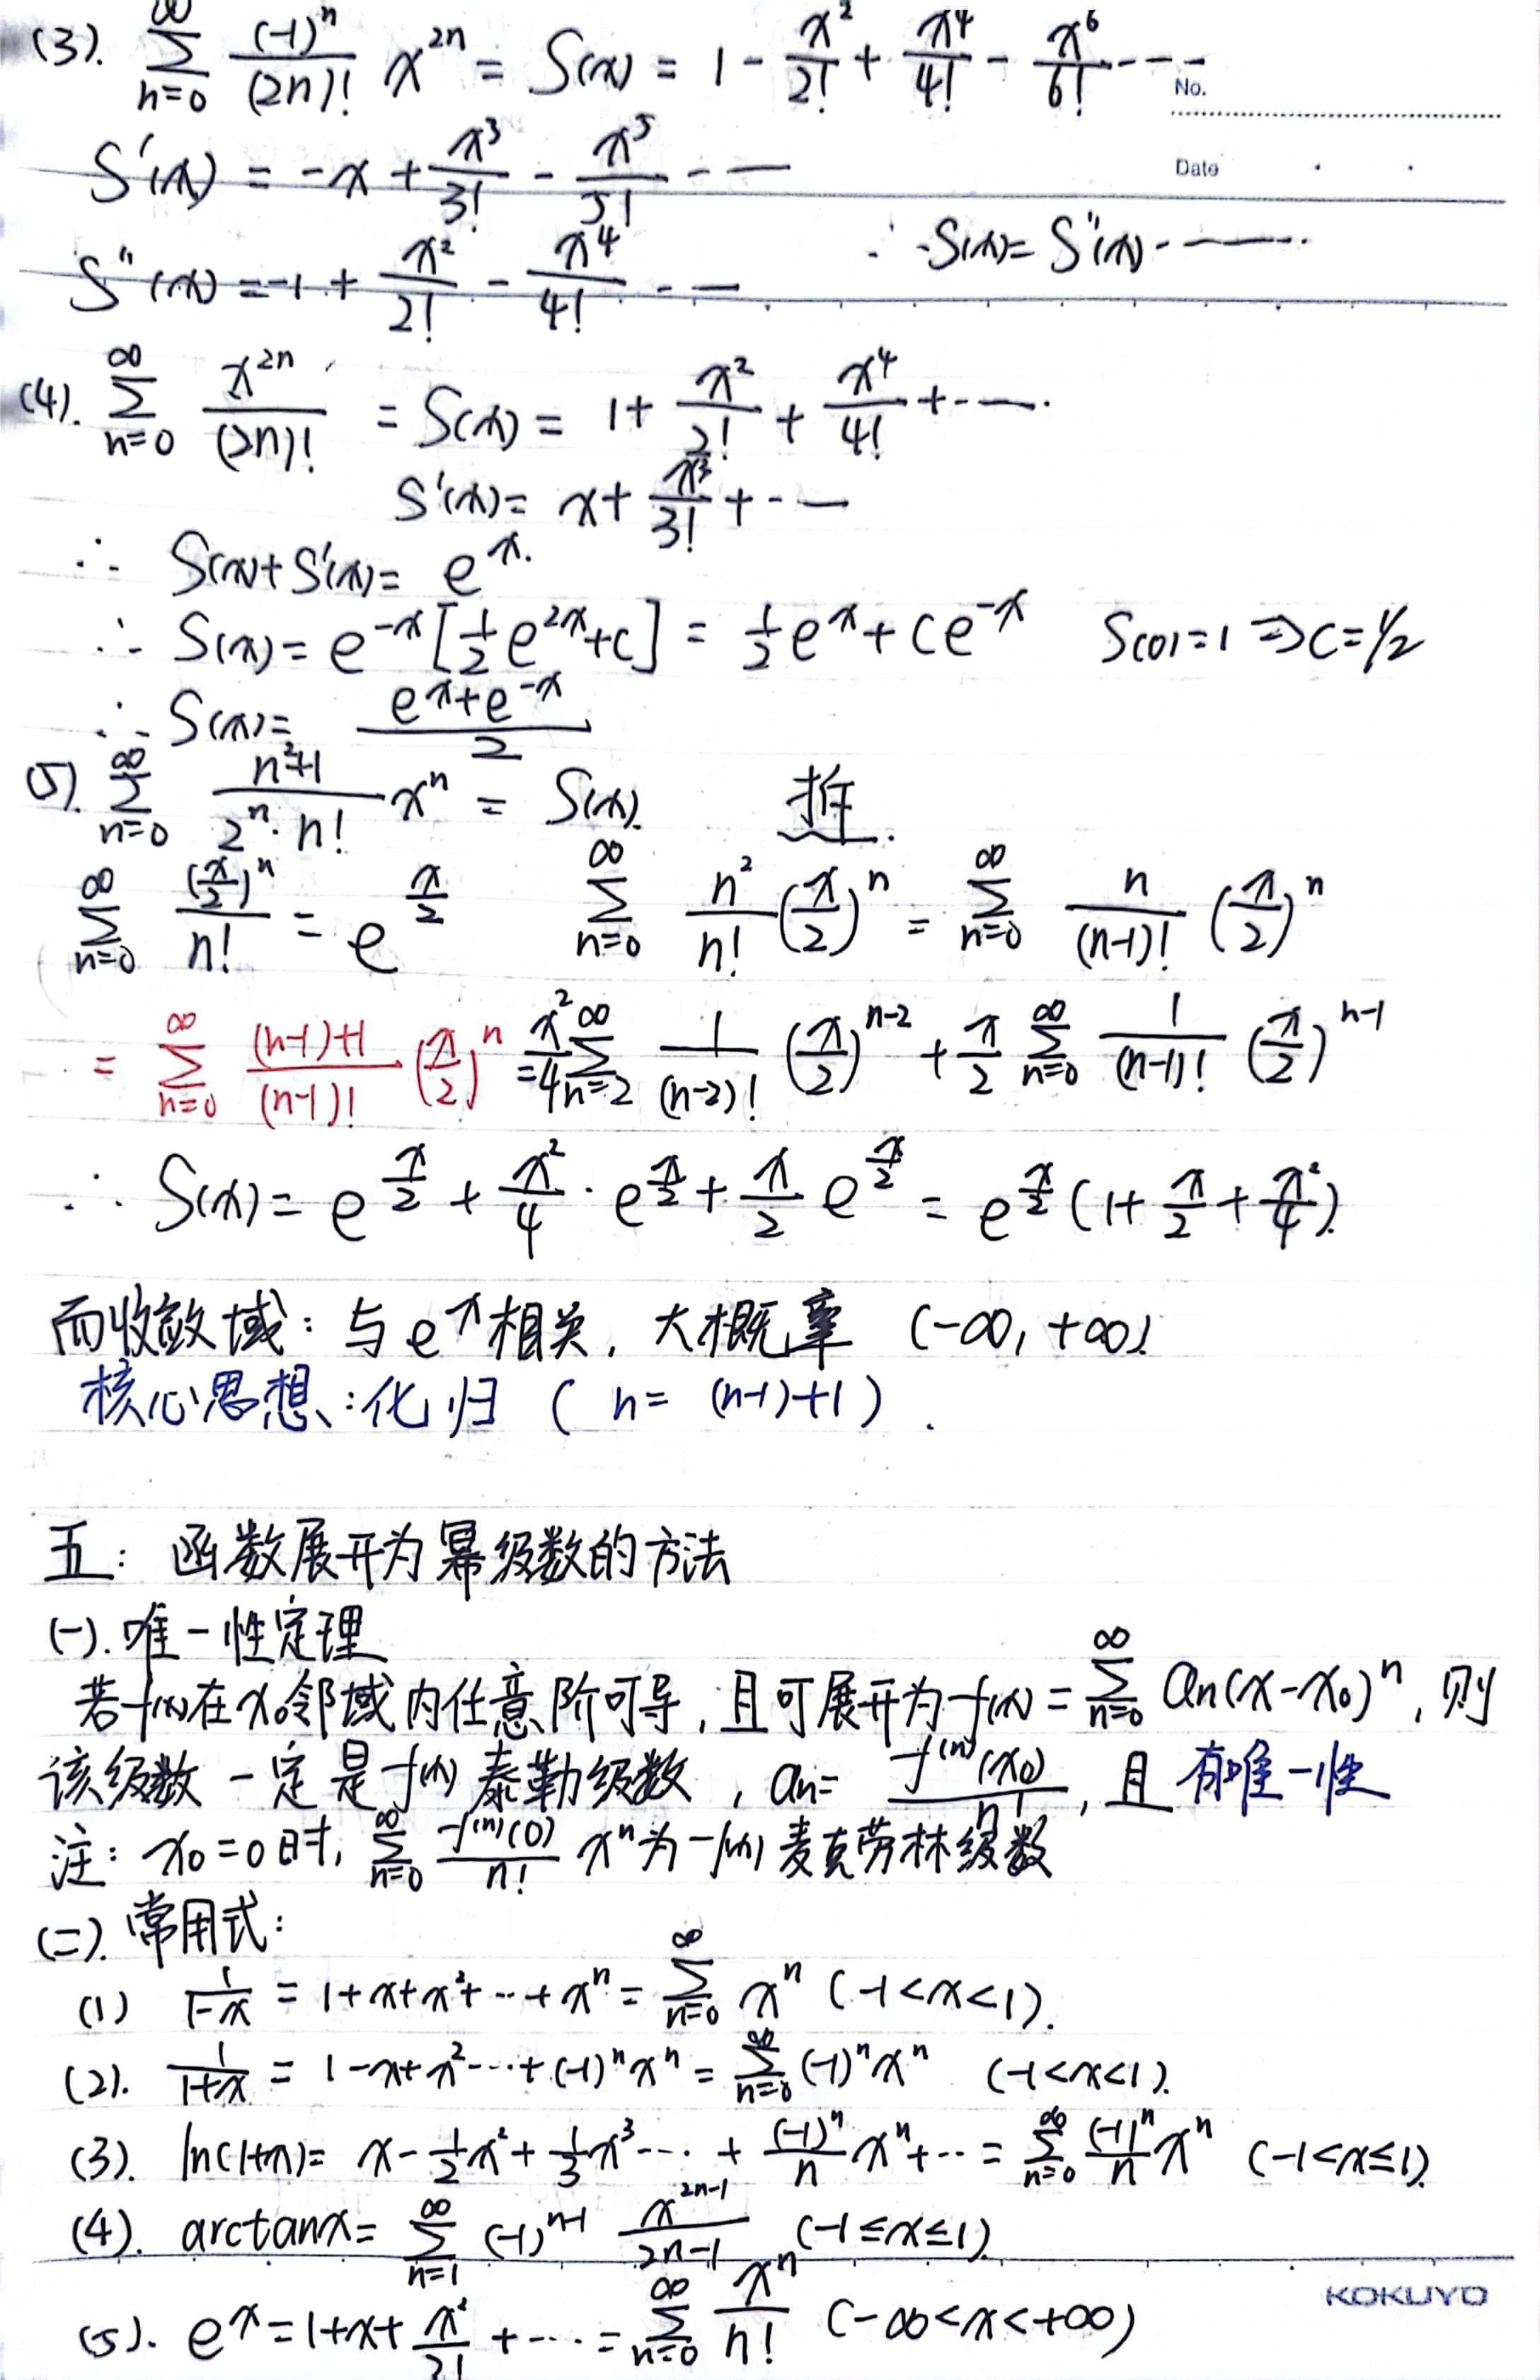 (3). ∑_{n=0}^{∞} (-1)^n/(2n)! x^{2n} = S(x) = 1 - x²/2! + x⁴/4! - x⁶/6! ---
No.
S'(x) = -x + x³/3! - x⁵/5! ---
Date
∴ -S(x) = S''(x) -----
S''(x) = -1 + x²/2! - x⁴/4! ---
(4). ∑_{n=0}^{∞} x^{2n}/(2n)! = S(x) = 1 + x²/2! + x⁴/4! + ---
S'(x) = x + x³/3! + ---
∴ S(x)+S'(x) = e^x.
∴ S(x) = e^{-x}[½e^{2x}+c] = ½e^x + ce^{-x} S(0)=1 ⇒ c=1/2
∴ S(x) = (e^x+e^{-x})/2
(5). ∑_{n=0}^{∞} (n²+1)/(2^n·n!) x^n = S(x).
∑_{n=0}^{∞} (x/2)^n/n! = e^{x/2} ∑_{n=0}^{∞} n²/n! (x/2)^n = ∑_{n=0}^{∞} n/(n-1)! (x/2)^n
= ∑_{n=0}^{∞} ((n-1)+1)/(n-1)! (x/2)^n = x²/4 ∑_{n=2}^{∞} 1/(n-2)! (x/2)^{n-2} + x/2 ∑_{n=0}^{∞} 1/(n-1)! (x/2)^{n-1}
∴ S(x) = e^{x/2} + x²/4 · e^{x/2} + x/2 e^{x/2} = e^{x/2}(1 + x/2 + x²/4).
而收敛域：与e^x相关，大概率 (-∞, +∞).
核心思想：化归 ( n = (n-1)+1 ).
五：函数展开为幂级数的方法
(一). 唯一性定理
若f(x)在x₀邻域内任意阶可导，且可展开为f(x) = ∑_{n=0}^{∞} an(x-x₀)^n，则
该级数一定是f(x)泰勒级数，an = f^{(n)}(x₀)/n!，且有唯一性
注：x₀=0时，∑_{n=0}^{∞} f^{(n)}(0)/n! x^n为f(x)麦克劳林级数
(二). 常用式：
(1) 1/(1-x) = 1+x+x²+···+x^n = ∑_{n=0}^{∞} x^n (-1<x<1).
(2). 1/(1+x) = 1-x+x²-···+(-1)^n x^n = ∑_{n=0}^{∞} (-1)^n x^n (-1<x<1).
(3). ln(1+x) = x - ½x² + ⅓x³ -··· + (-1)^n/n x^n + ··· = ∑_{n=0}^{∞} (-1)^n/n x^n (-1<x≤1).
(4). arctanx = ∑_{n=1}^{∞} (-1)^{n-1} x^{2n-1}/(2n-1) (-1≤x≤1).
KOKUYO
(5). e^x = 1+x+x²/2! + ···· = ∑_{n=0}^{∞} x^n/n! (-∞<x<+∞)